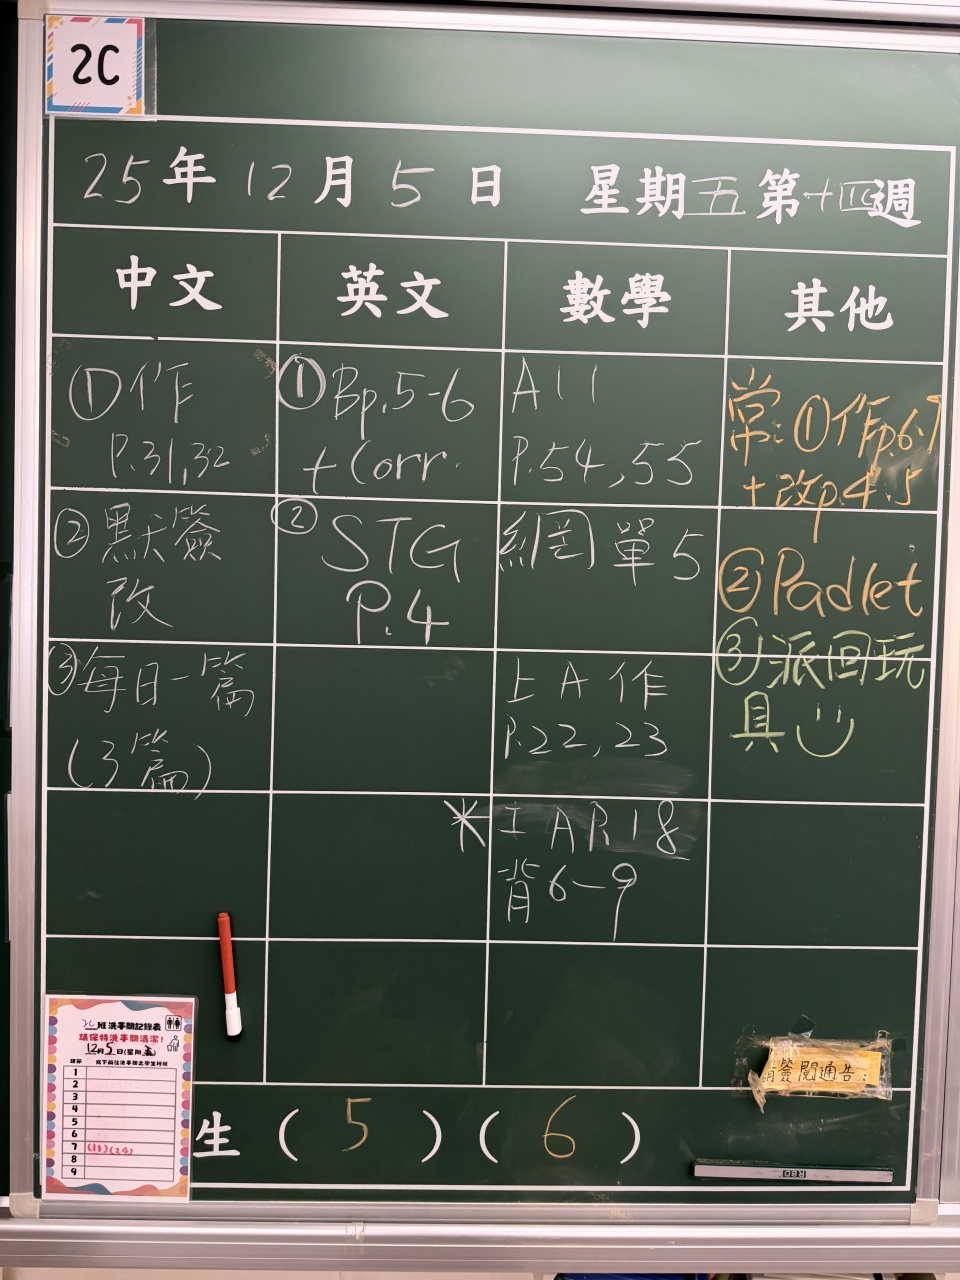 2C
25年12月5日 星期五第十四週
中文
英文
數學
其他
①作
P.31,32
②默簽
改
③每日一篇
(3篇)
①Bp.5-6
+Corr.
②STG
P.4
A11
P.54,55
網單5
上A作
P.22,23
*工AR18
背6-9
常:①作p.6.7
+改p.4.5
②Padlet
③派回玩
具
2C班洗手間記錄表
請保持洗手間清潔!
12月5日(星期五)
1
2
3
4
5
6
7 (11)(24)
8
9
請簽閱通告:
生(5)(6)